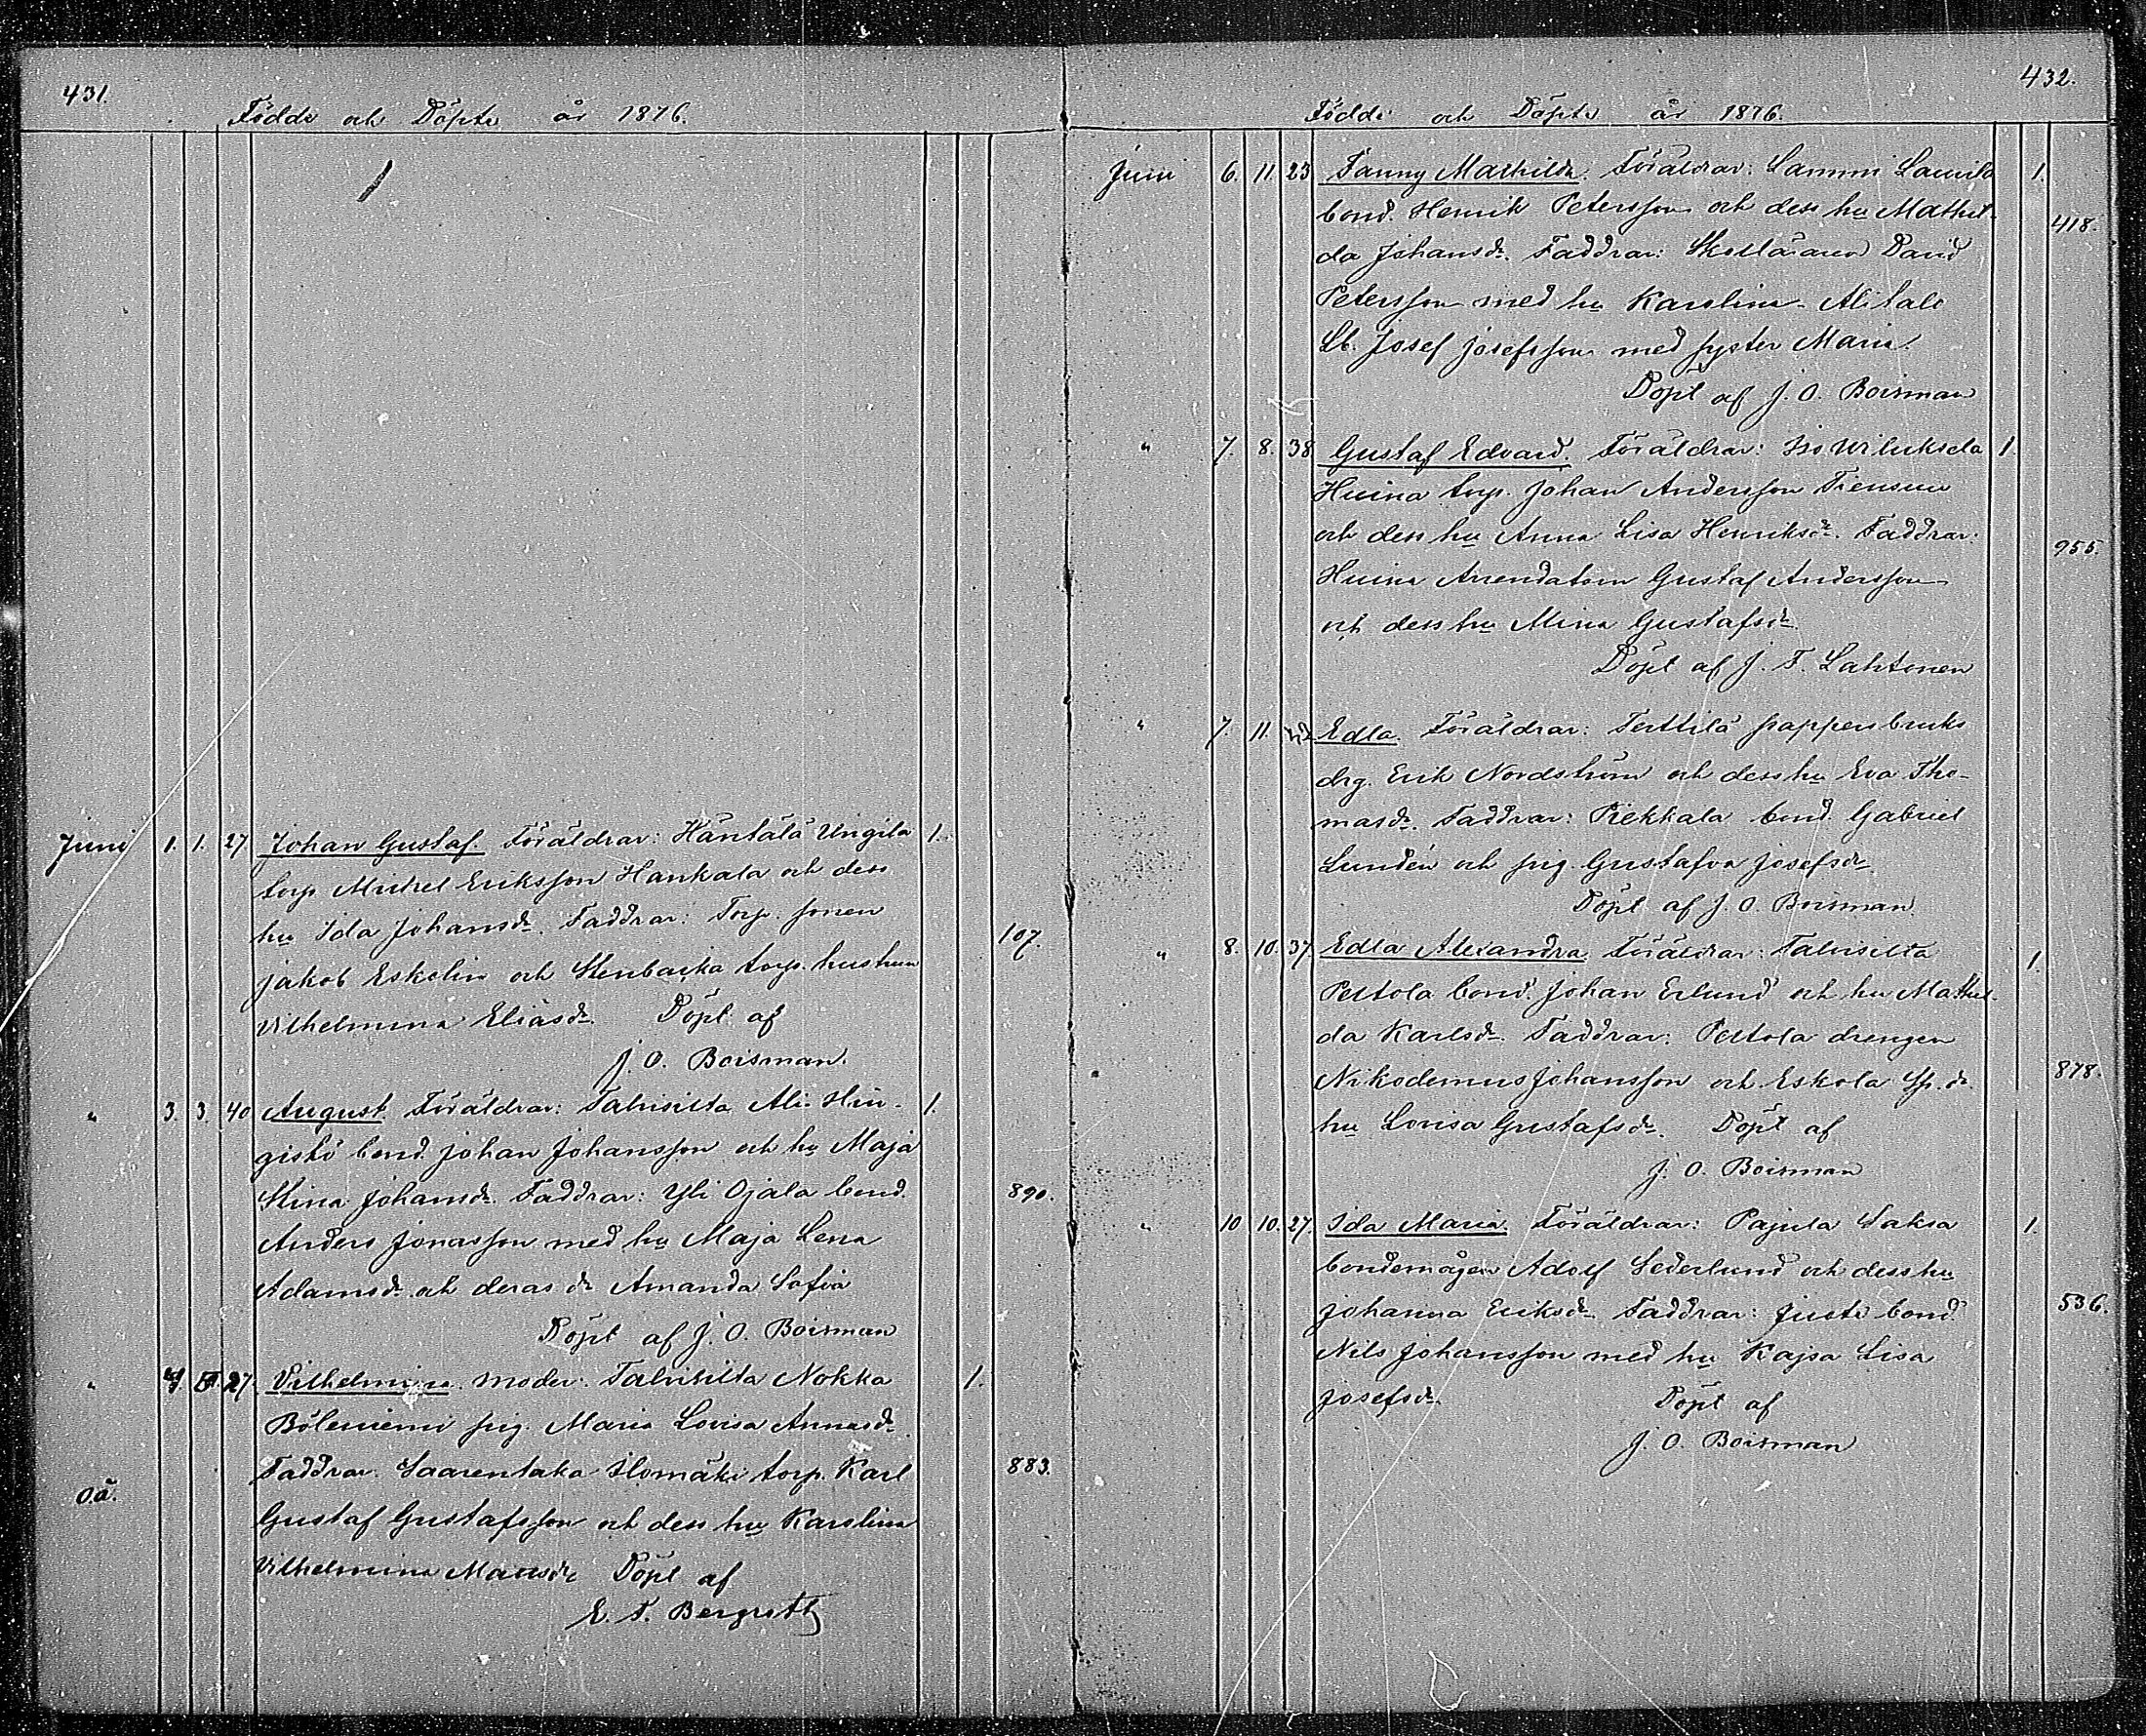 431.
Födde och Döpte år 1876.
Juni 1. 1. 27 Johan Gustaf. Föräldrar: Häntälä Ungila 1.
torp Michel Eriksson Hankala och dess
hu Ida Johansdr. Faddrar: Torp. sonen
107.
Jakob Eskelin och Stenbacka torp. hustrun
Vilhelmina Eliasdr. Döpt af
J. O. Boisman.
" 3. 3. 40 August. Föräldrar: Talvisilta Ali-Hin- 1.
gistö bond. Johan Johansson och hu Maja
Stina Johansdr. Faddrar: Yli Ojala bond. 890.
Anders Jonasson med hu Maja Lena
Adamsdr. och deras dr Amanda Sofia
Döpt af J. O. Boisman
" 27. Vilhelmina. Moder: Talvisilta Nokka 1.
pig. Maria Lovisa Annasdr.
Faddrar: Saarentaka Ilomäki torp. Karl 883.
o.ä.
Gustaf Gustafsson och dess hu Karolina
Vilhelmina Döpt af
E. F. Bergroth
432.
Födde och Döpte år 1876.
Juni 6. 11. 23 Fanny Mathilda. Föräldrar: Lammi Laurila 1.
bond. Henrik Petersson och dess hu Mathil- 418.
da Johansdr. Faddrar: Skolläraren David
Petersson med hu Karolina. Alitalo
Lb. Josef Josefsson med syster Maria.
Döpt af J. O. Boisman
" 7. 8. 38 Gustaf Edvard. Föräldrar: Iso Wiluksela 1.
Huina torp. Johan Andersson Tiensuu
och dess hu Anna Lisa Henriksdr. Faddrar: 955.
Huina Arrendatorn Gustaf Andersson
och dess hu Mina Gustafsdr.
Döpt af J. F. Lahtonen
" 7. 11. Edla. Föräldrar: Terttilä pappersbruks
drg. Erik Nordström och dess hu Eva Tho-
masdr. Faddrar: Piekkala bond. Gabriel
Lundén och pig. Gustafva Josefsdr.
Döpt af J. O. Boisman.
" 8. 10. 37. Edla Alexandra. Föräldrar: Talvisilta 1.
Pertola bond. Johan Erlund och hu Mathil-
da Karlsdr. Faddrar: Pertola drengen
Nikodemus Johansson och Eskola Sp. dr 878.
hu Lovisa Gustafsdr. Döpt af
J. O. Boisman
" 10 10. 27. Ida Maria. Föräldrar: Pajula Saksa 1.
bondemågen Adolf Sederlund och dess hu
Johanna Eriksdr. Faddrar: Juste bond. 536.
Nils Johansson med hu Kajsa Lisa
Josefsdr. Döpt af
J. O. Boisman